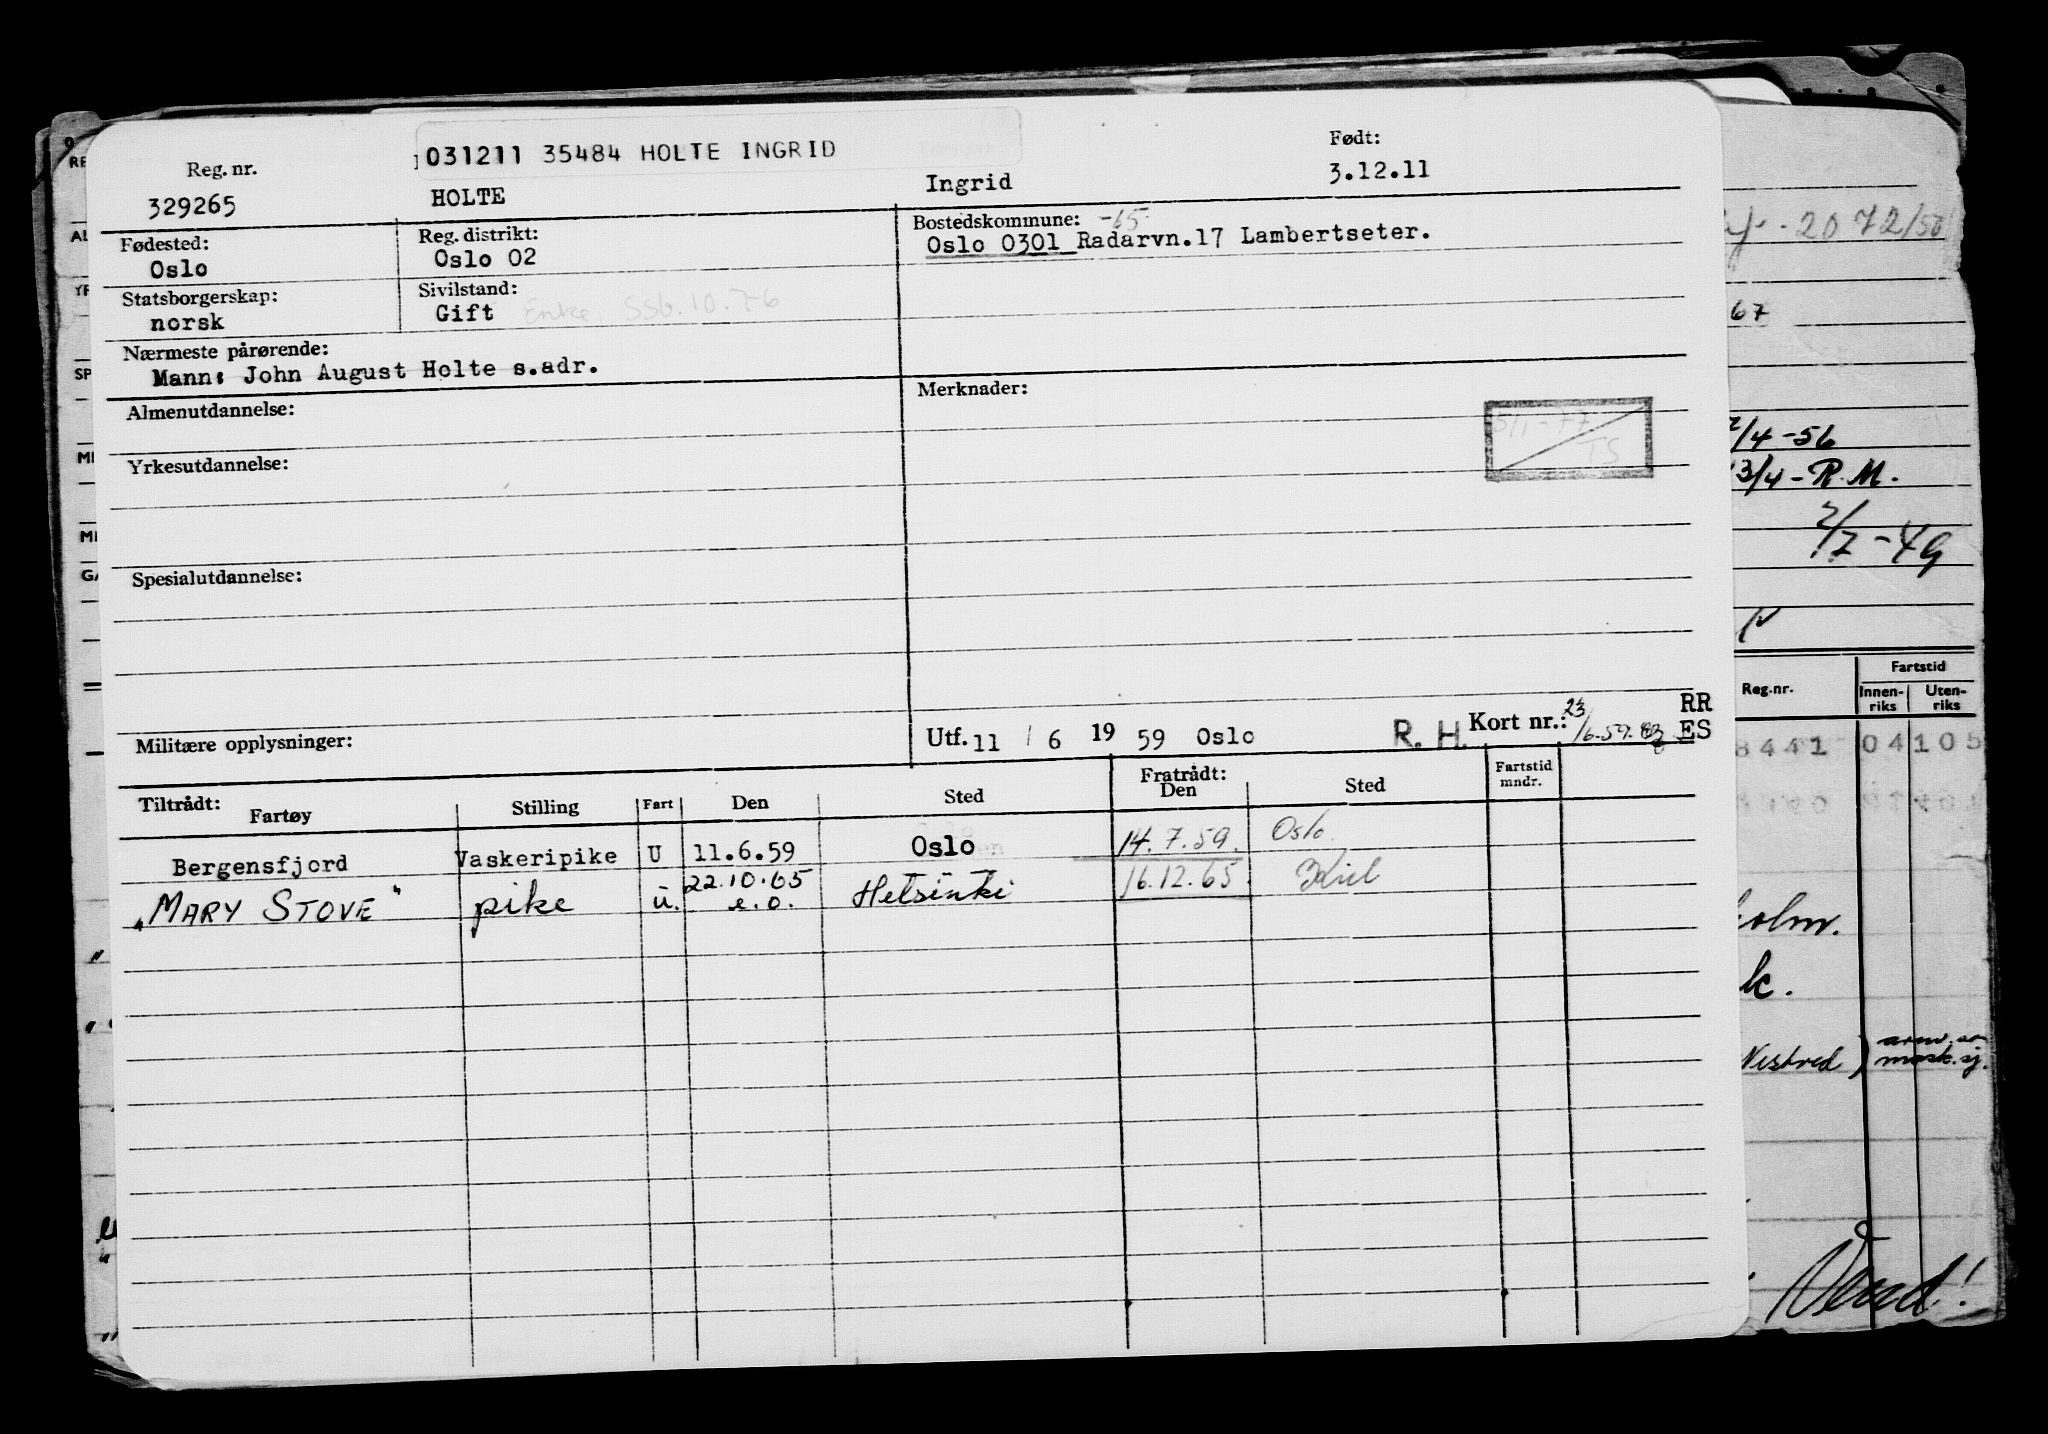 031211 35484 HOLTE INGRID
Født:
Reg. nr.
329265
HOLTE
Ingrid
3.12.11
Fødested:
Oslo
Reg. distrikt:
Oslo 02
Bostedskommune: -65
Oslo 0301 Radarvn.17 Lambertseter.
Statsborgerskap:
norsk
Sivilstand:
Gift Enke. SSb. 10.76
Nærmeste pårørende:
Mann: John August Holte s.adr.
Almenutdannelse:
Merknader:
5/1-77
TS
Yrkesutdannelse:
Spesialutdannelse:
Militære opplysninger:
Utf. 11 / 6 19 59 Oslo
R. H.
Kort nr.:
RR
ES
Tiltrådt:
Fartøy
Stilling
Fart
Den
Sted
Fratrådt:
Den
Sted
Fartstid
mndr.
Bergensfjord Vaskeripike U 11.6.59 Oslo 14.7.59. Oslo
"MARY STOVE" pike u. 22.10.65 e.o. Helsinki 16.12.65 Kiel
2072/50
67
/4-56
3/4-R.M.
2/7-49
Reg.nr.
Fartstid
Innen-
riks
Uten-
riks
8441 04 105
olm.
k.
Vestred
Vend!